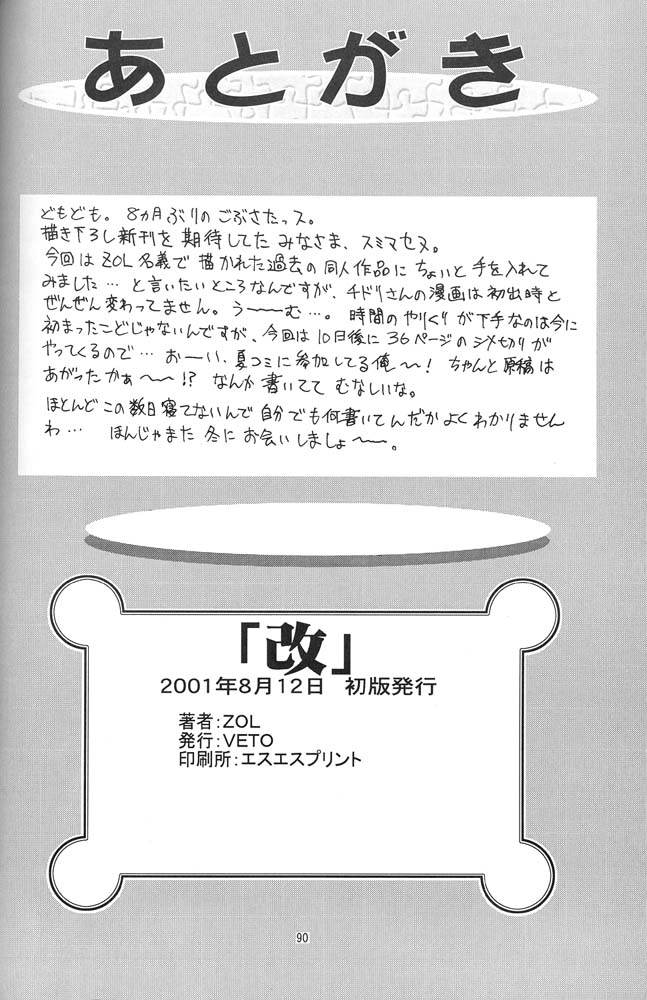 あとがき
どもども。8カ月ぶりのごぶさたっス。
描き下ろし新刊を期待してたみなさま、スミマセヌ。
今回はZOL名義で描かれた過去の同人作品にちょいと手を入れて
みました…と言いたいところなんですが、チドリさんの漫画は初出時と
ぜんぜん変わってません。うーーむ…。時間のやりくりが下手なのは今に
初まったこどじゃないんですが、今回は10日後に36ページのシメ切りが
やってくるので…おーい、夏コミに参加してる俺〜〜!ちゃんと原稿は
あがったかぁ〜〜!?なんか書いててむなしいな。
ほとんどこの数日寝てないんで自分でも何書いてんだかよくわかりません
わ…ほんじゃまた冬にお会いしましょ〜〜。
「改」
2001年8月12日 初版発行
著者:ZOL
発行:VETO
印刷所:エスエスプリント
90